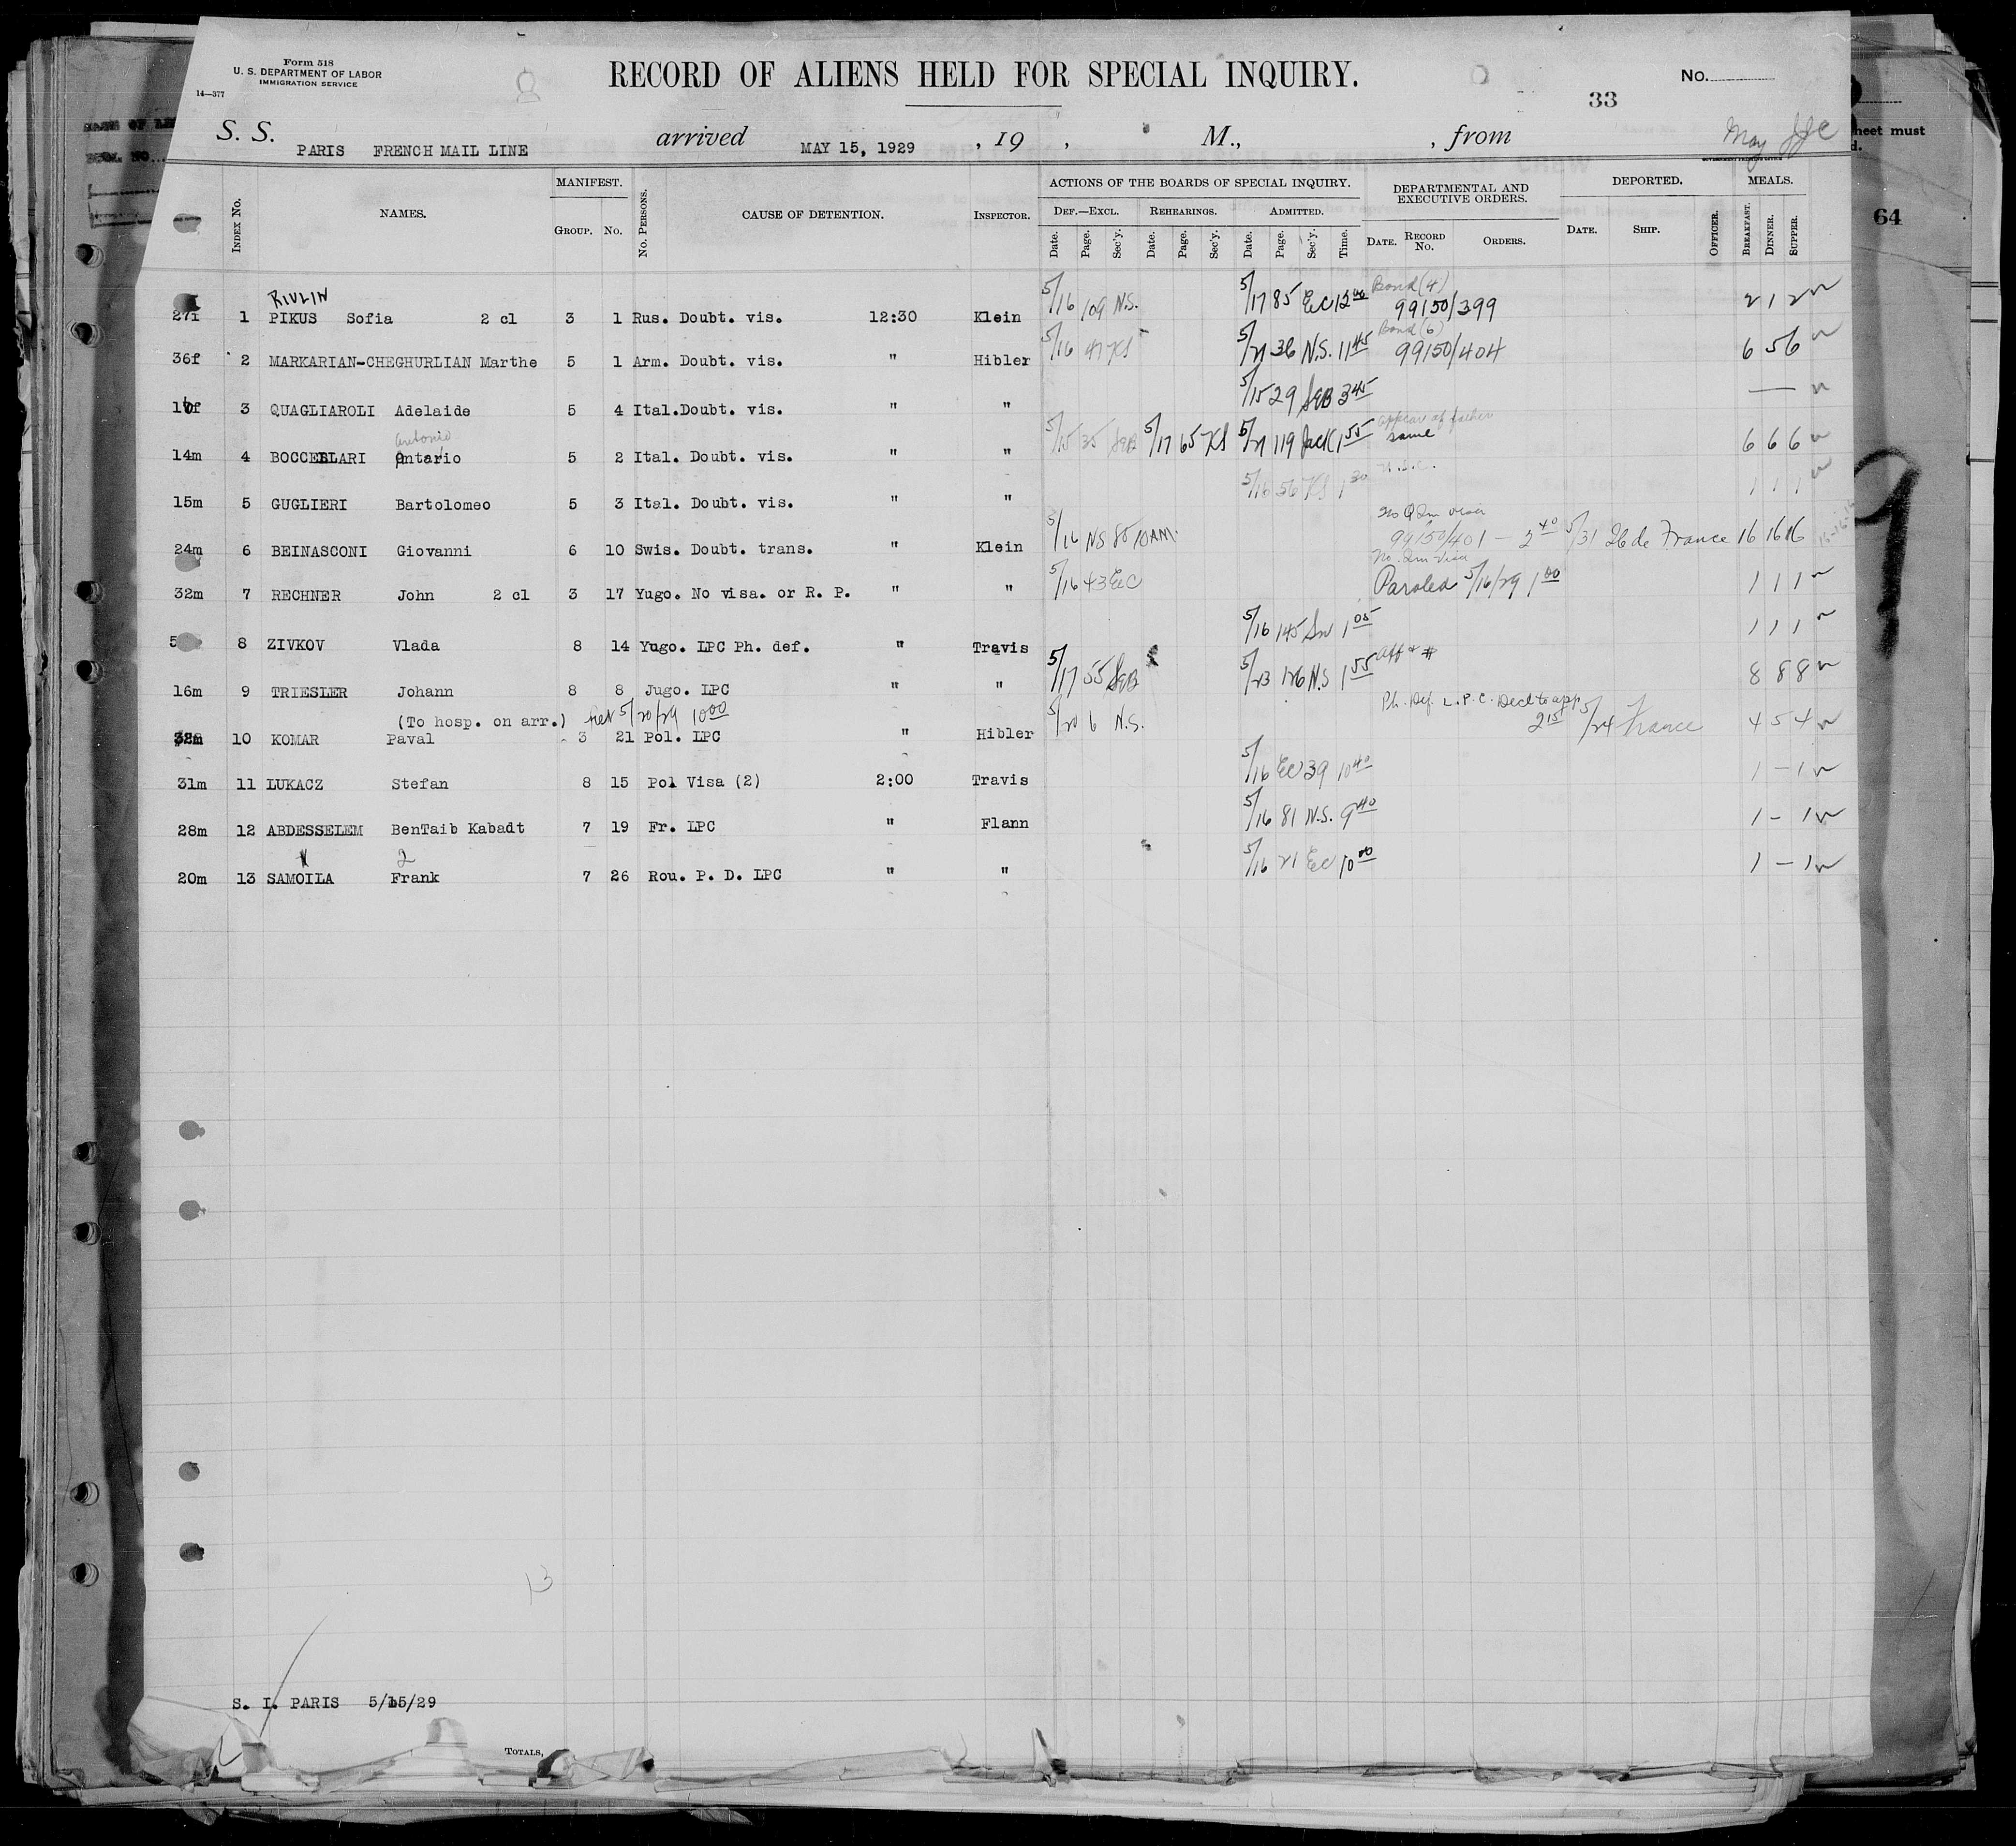 Form 518
U. S. DEPARTMENT OF LABOR
IMMIGRATION SERVICE
14—377
RECORD OF ALIENS HELD FOR SPECIAL INQUIRY.
No.
33
S. S. PARIS FRENCH MAIL LINE arrived MAY 15, 1929 , 19 , M., , from
May
heet must
d.
64
INDEX No. NAMES. MANIFEST. GROUP. No. No. PERSONS. CAUSE OF DETENTION. INSPECTOR. ACTIONS OF THE BOARDS OF SPECIAL INQUIRY. DEPARTMENTAL AND EXECUTIVE ORDERS. DEPORTED. MEALS.
DEF.—EXCL. REHEARINGS. ADMITTED.
Date. Page. Sec'y. Date. Page. Sec'y. Date. Page. Sec'y. Time. DATE. RECORD No. ORDERS. DATE. SHIP. OFFICER. BREAKFAST. DINNER. SUPPER.
RIVLIN Bond (4)
27f 1 PIKUS Sofia 2 cl 3 1 Rus. Doubt. vis. 12:30 Klein 5/16 109 N.S. 5/17 85 EC 12 00 99150/399 2 1 2
Bond (6)
36f 2 MARKARIAN-CHEGHURLIAN Marthe 5 1 Arm. Doubt. vis. " Hibler 5/16 47 KS 5/21 36 N.S. 11 45 99150/404 6 5 6
3 QUAGLIAROLI Adelaide 5 4 Ital.Doubt. vis. " " 5/15 29 SEB 3 45 —
Antonio appear of father
14m 4 5 2 Ital. Doubt. vis. " " 5/15 35 SEB 5/17 65 KS 5/21 119 1 55 same 6 6 6
15m 5 GUGLIERI Bartolomeo 5 3 Ital. Doubt. vis. " " 5/16 56 KS 1 30 1 1 1
24m 6 BEINASCONI Giovanni 6 10 Swis. Doubt. trans. " Klein 5/16 NS 80 10AM. 99150/401 — 2 40 5/31 Ile de France 16 16 16
No. Im Visa
32m 7 RECHNER John 2 cl 3 17 Yugo. No visa. or R. P. " " 5/16 43 EC Paroled 5/16/29 1 00 1 1 1
8 ZIVKOV Vlada 8 14 Yugo. LPC Ph. def. " Travis 5/16 145 1 05 1 1 1
16m 9 TRIESLER Johann 8 8 Jugo. LPC " " 5/17 55 SEB 5/23 126 N.S 1 55 Aff + # 8 8 8
(To hosp. on arr.) Ret 5/20/29 10 00 Ph. Def. L.P.C. Decl to app
10 KOMAR Paval 3 21 Pol. LPC " Hibler 5/20 6 N.S. 2 15 5/24 France 4 5 4
31m 11 LUKACZ Stefan 8 15 Pol Visa (2) 2:00 Travis 5/16 EC 39 10 40 1 - 1
28m 12 ABDESSELEM BenTaib Kabadt 7 19 Fr. LPC " Flann 5/16 81 N.S. 9 40 1 - 1
20m 13 SAMOILA Frank 7 26 Rou. P. D. LPC " " 5/16 21 EC 10 00 1 - 1
13
S. I. PARIS 5/15/29
TOTALS,